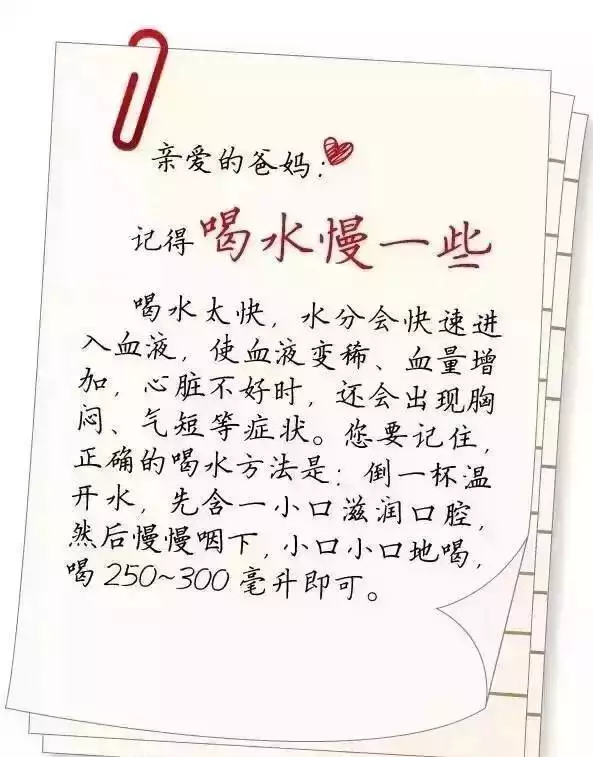 亲爱的爸妈：
记得喝水慢一些
喝水太快，水分会快速进
入血液，使血液变稀、血量增
加，心脏不好时，还会出现胸
闷、气短等症状。您要记住，
正确的喝水方法是：倒一杯温
开水，先含一小口滋润口腔，
然后慢慢咽下，小口小口地喝，
喝250~300毫升即可。